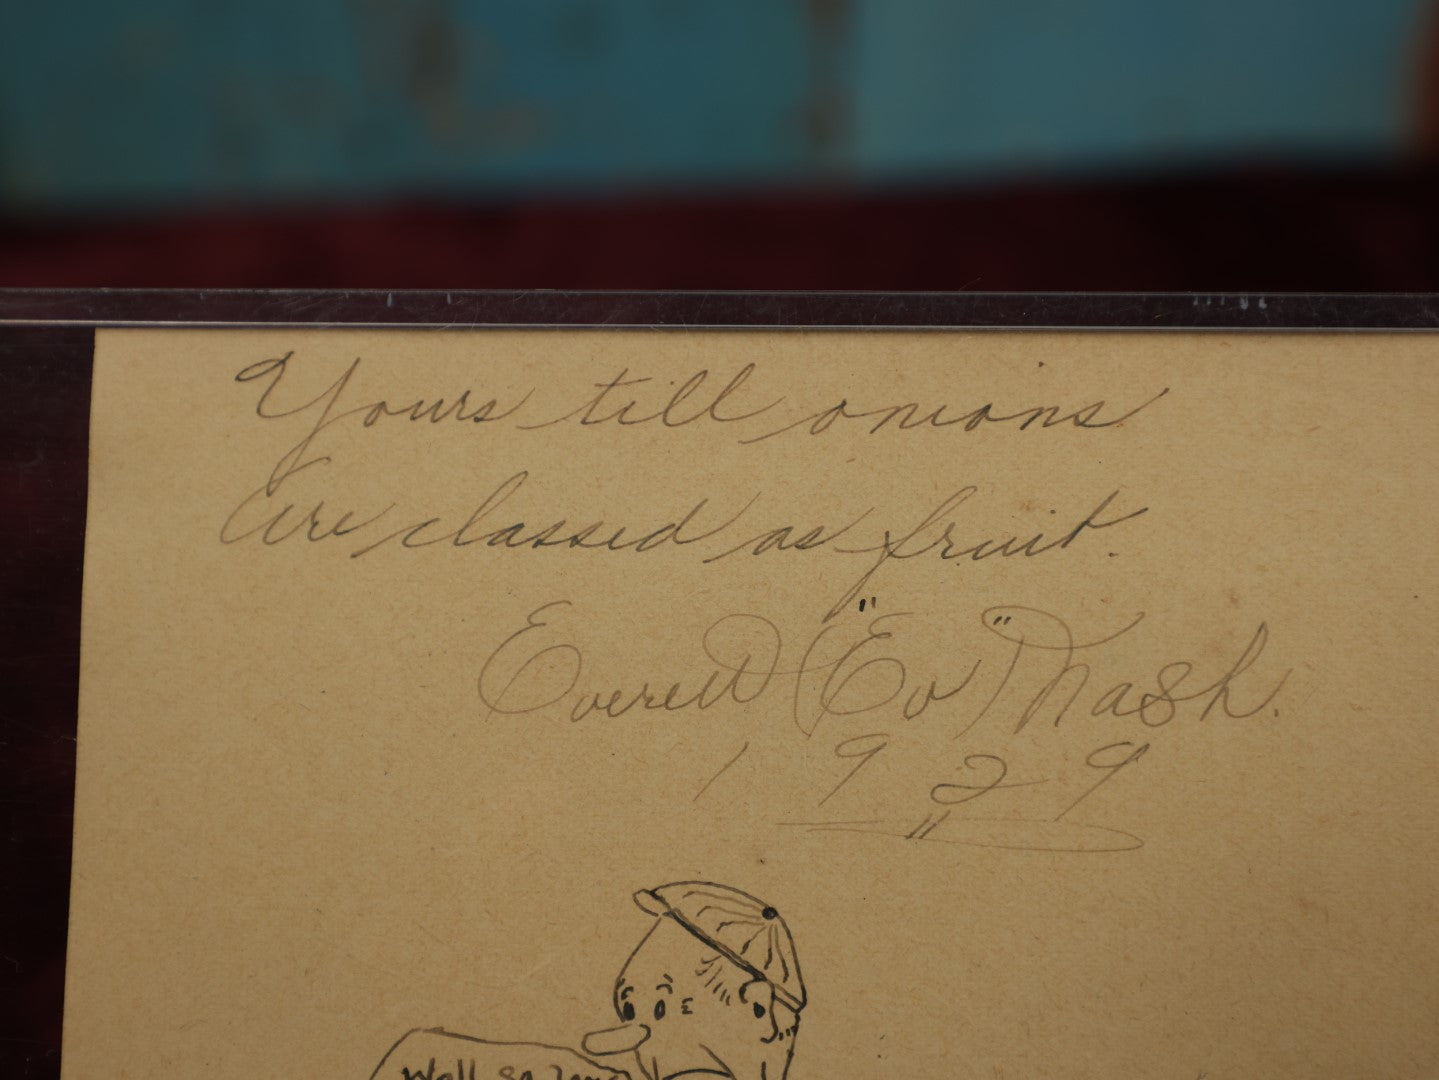 Yours till onions
are classed as fruit.
Everett ("Ev") Nash.
1929
Well so long